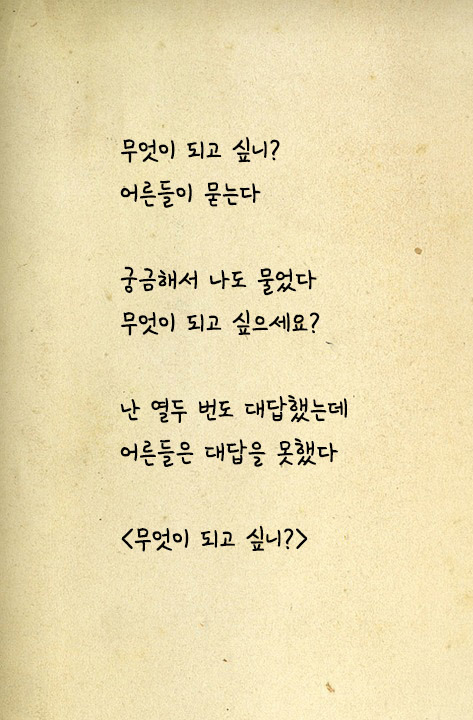 무엇이 되고 싶니?
어른들이 묻는다
궁금해서 나도 물었다
무엇이 되고 싶으세요?
난 열두 번도 대답했는데
어른들은 대답을 못했다
<무엇이 되고 싶니?>